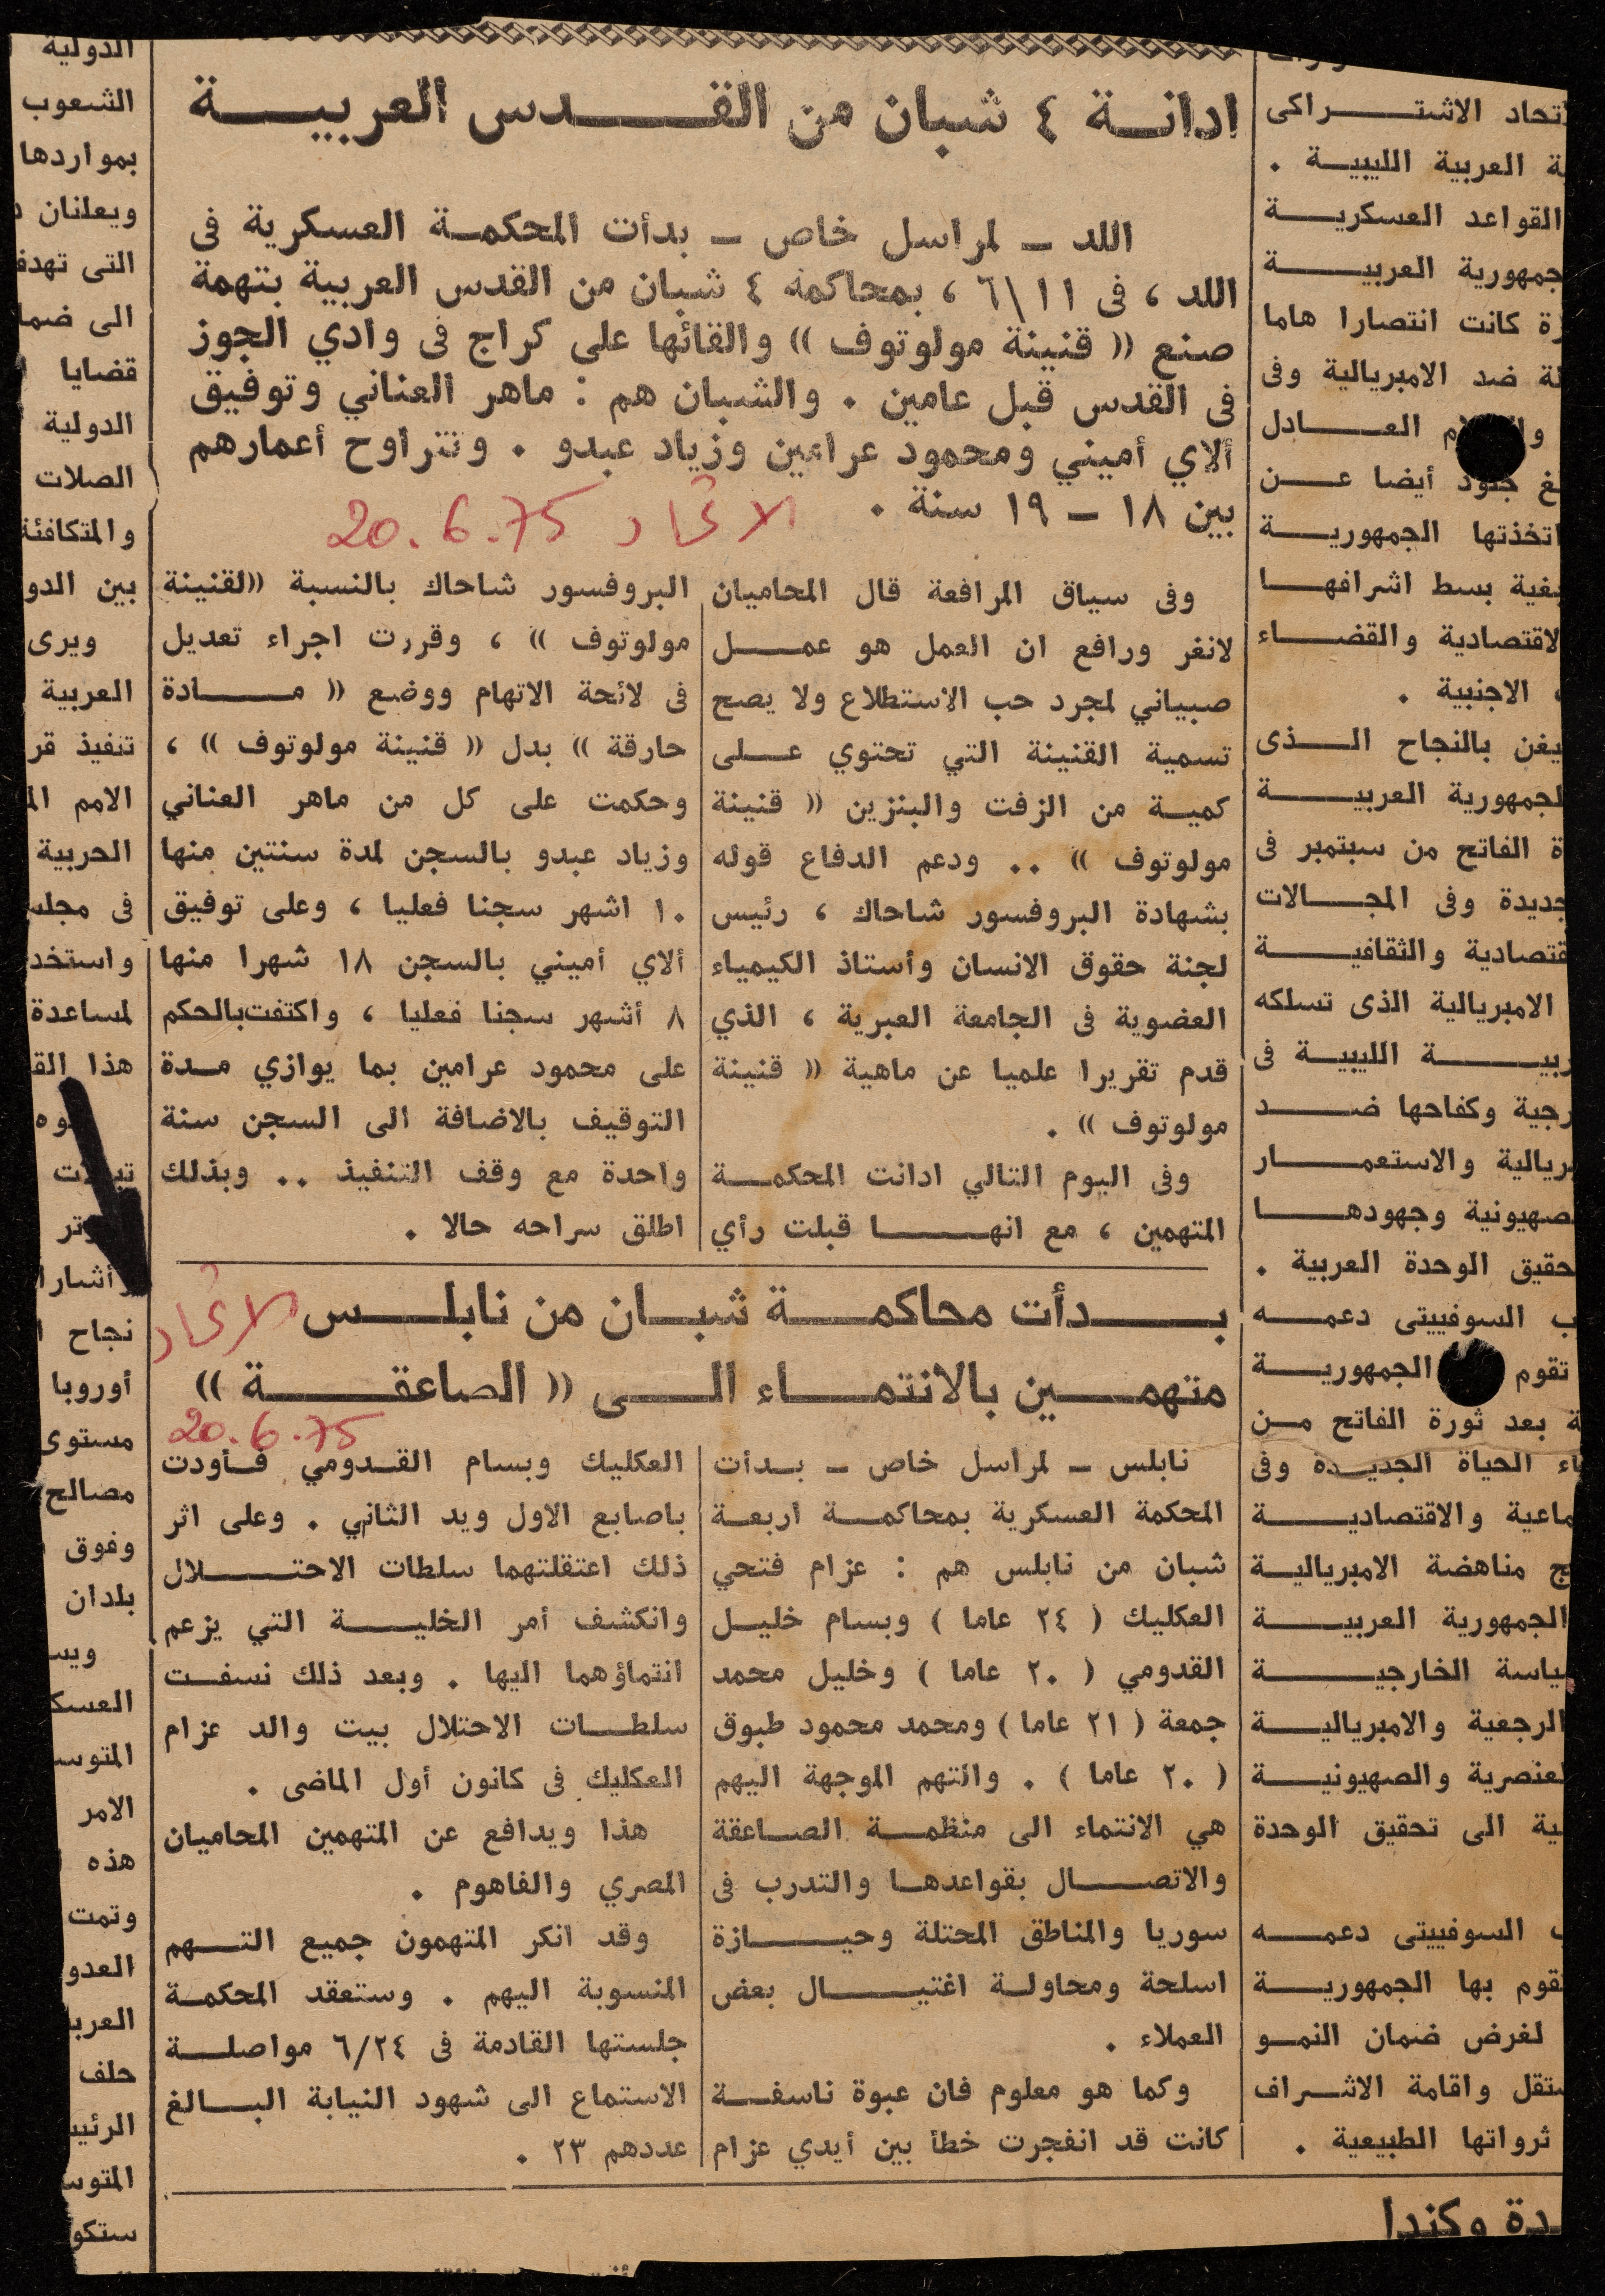 ادانة ٤ شبان من القدس العربية
اللد ــ لمراسل خاص ــ بدأت المحكمة العسكرية فى
اللد ، فى ١١\٦ ، بمحاكمة ٤ شبان من القدس العربية بتهمة
صنع (( قنينة مولوتوف )) والقائها على كراج فى وادي الجوز
فى القدس قبل عامين . والشبان هم : ماهر العناني وتوفيق
ألاي أميني ومحمود عرامين وزياد عبدو . وتتراوح أعمارهم
بين ١٨ ــ ١٩ سنة .
الاتحاد 20.6.75
وفى سياق المرافعة قال المحاميان
لانغر ورافع ان العمل هو عمل
صبياني لمجرد حب الاستطلاع ولا يصح
تسمية القنينة التي تحتوي على
كمية من الزفت والبنزين (( قنينة
مولوتوف )) .. ودعم الدفاع قوله
بشهادة البروفسور شاحاك ، رئيس
لجنة حقوق الانسان وأستاذ الكيمياء
العضوية فى الجامعة العبرية ، الذي
قدم تقريرا علميا عن ماهية (( قنينة
مولوتوف )) .
وفى اليوم التالي ادانت المحكمة
المتهمين ، مع انها قبلت رأي
البروفسور شاحاك بالنسبة ((لقنينة
مولوتوف )) ، وقررت اجراء تعديل
فى لائحة الاتهام ووضع (( مادة
حارقة )) بدل (( قنينة مولوتوف )) ،
وحكمت على كل من ماهر العناني
وزياد عبدو بالسجن لمدة سنتين منها
١٠ اشهر سجنا فعليا ، وعلى توفيق
ألاي أميني بالسجن ١٨ شهرا منها
٨ أشهر سجنا فعليا ، واكتفت بالحكم
على محمود عرامين بما يوازي مدة
التوقيف بالاضافة الى السجن سنة
واحدة مع وقف التنفيذ .. وبذلك
اطلق سراحه حالا .
بدأت محاكمة شبان من نابلس
متهمين بالانتماء الى (( الصاعقة ))
الاتحاد
20.6.75
نابلس ــ لمراسل خاص ــ بدأت
المحكمة العسكرية بمحاكمة اربعة
شبان من نابلس هم : عزام فتحي
العكليك ( ٢٤ عاما ) وبسام خليل
القدومي ( ٢٠ عاما ) وخليل محمد
جمعة ( ٢١ عاما ) ومحمد محمود طبوق
( ٢٠ عاما ) . والتهم الموجهة اليهم
هي الانتماء الى منظمة الصاعقة
والاتصال بقواعدها والتدرب فى
سوريا والمناطق المحتلة وحيازة
اسلحة ومحاولة اغتيال بعض
العملاء .
وكما هو معلوم فان عبوة ناسفة
كانت قد انفجرت خطأ بين أيدي عزام
العكليك وبسام القدومي فأودت
باصابع الاول ويد الثاني . وعلى اثر
ذلك اعتقلتهما سلطات الاحتلال
وانكشف أمر الخلية التي يزعم
انتماؤهما اليها . وبعد ذلك نسفت
سلطات الاحتلال بيت والد عزام
العكليك فى كانون أول الماضى .
هذا ويدافع عن المتهمين المحاميان
المصري والفاهوم .
وقد انكر المتهمون جميع التهم
المنسوبة اليهم . وستعقد المحكمة
جلستها القادمة فى ٦/٢٤ مواصلة
الاستماع الى شهود النيابة البالغ
عددهم ٢٣ .
الاشتراكى
العربية الليبية .
القواعد العسكرية
العربية
كانت انتصارا هاما
ضد الامبريالية وفى
العادل
جلود أيضا عن
اتخذتها الجمهورية
بغية بسط اشرافها
الاقتصادية والقضاء
الاجنبية .
بالنجاح الذى
الجمهورية العربية
الفاتح من سبتمبر فى
جديدة وفى المجالات
والثقافية
الامبريالية الذى تسلكه
الليبية فى
وكفاحها ضد
والاستعمار
وجهودها
الوحدة العربية .
السوفييتى دعمه
تقوم الجمهورية
بعد ثورة الفاتح من
الحياة الجديدة وفى
والاقتصادية
مناهضة الامبريالية
الجمهورية العربية
الخارجية
الرجعية والامبريالية
والصهيونية
الى تحقيق الوحدة
السوفييتى دعمه
تقوم بها الجمهورية
لغرض ضمان النمو
واقامة الاشراف
ثرواتها الطبيعية .
وكندا
الدولية
الشعوب
بمواردها
ويعلنان
التى
الى
قضايا
الدولية
الصلات
والمتكافئة
بين
ويرى
العربية
تنفيذ
الامم
الحربية
فى
لمساعدة
هذا
نجاح
أوروبا
مستوى
مصالح
وفوق
بلدان
الامر
هذه
وتمت
حلف